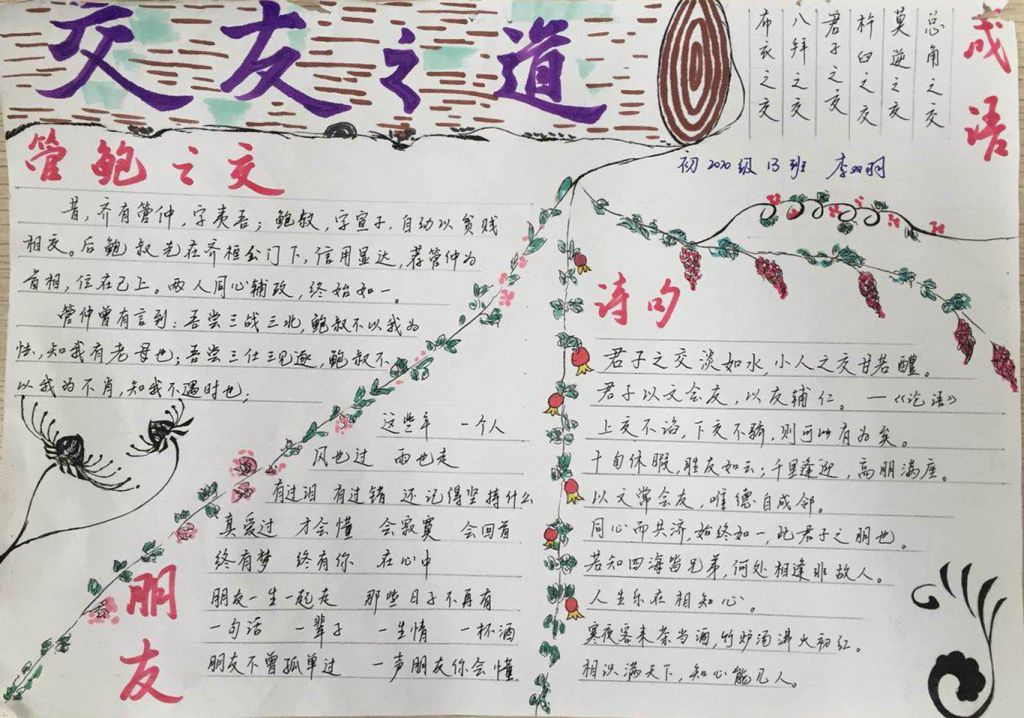 交友之道
成语
总角之交
莫逆之交
杵臼之交
君子之交
八拜之交
布衣之交
初2020级13班 李羽羽
管鲍之交
昔,齐有管仲,字夷吾;鲍叔,字宣子,自动以贫贱
相交。后鲍叔先在齐桓公门下,信用显达,荐管仲为
首相,位在己上。两人同心辅政,终始如一。
管仲曾有言到:吾尝三战三北,鲍叔不以我为
怯,知我有老母也;吾尝三仕三见逐,鲍叔不
以我为不肖,知我不遇时也;
朋友
这些年 一个人
风也过 雨也走
有过泪 有过错 还记得坚持什么
真爱过 才会懂 会寂寞 会回首
终有梦 终有你 在心中
朋友一生一起走 那些日子不再有
一句话 一辈子 一生情 一杯酒
朋友不曾孤单过 一声朋友你会懂
诗句
君子之交淡如水,小人之交甘若醴。
君子以文会友,以友辅仁。—《论语》
上交不谄,下交不骄,则可以有为矣。
十旬休暇,胜友如云;千里逢迎,高朋满座。
以文常会友,唯德自成邻。
同心而共济,始终如一,此君子之朋也。
若知四海皆兄弟,何处相逢非故人。
人生乐在相知心。
寒夜客来茶当酒,竹炉汤沸火初红。
相识满天下,知心能几人。